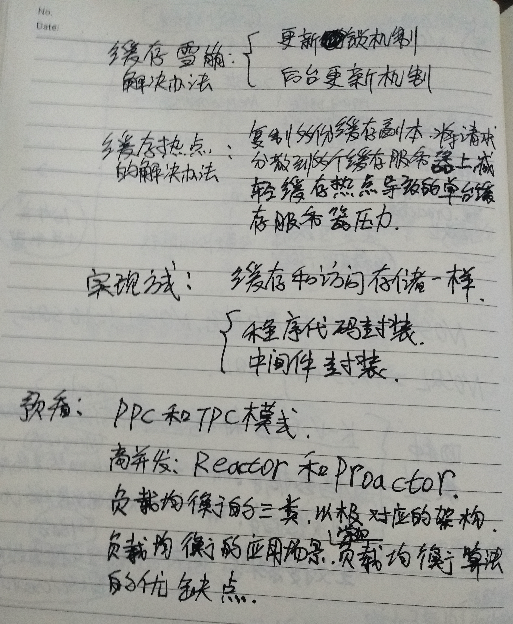 No.
Date.
缓存雪崩：
解决办法
更新锁机制
后台更新机制
缓存热点
的解决办法：
复制多份缓存副本，将请求
分散到多个缓存服务器上，减
轻缓存热点导致的单台缓
存服务器压力．
实现方式：缓存和访问存储者一样．
程序代码封装．
中间件封装．
预看：PPC和TPC模式．
高并发：Reactor和Proactor．
负载均衡的三类，以极对应的架构．
负载均衡的应用场景．常见负载均衡算法
的优缺点．